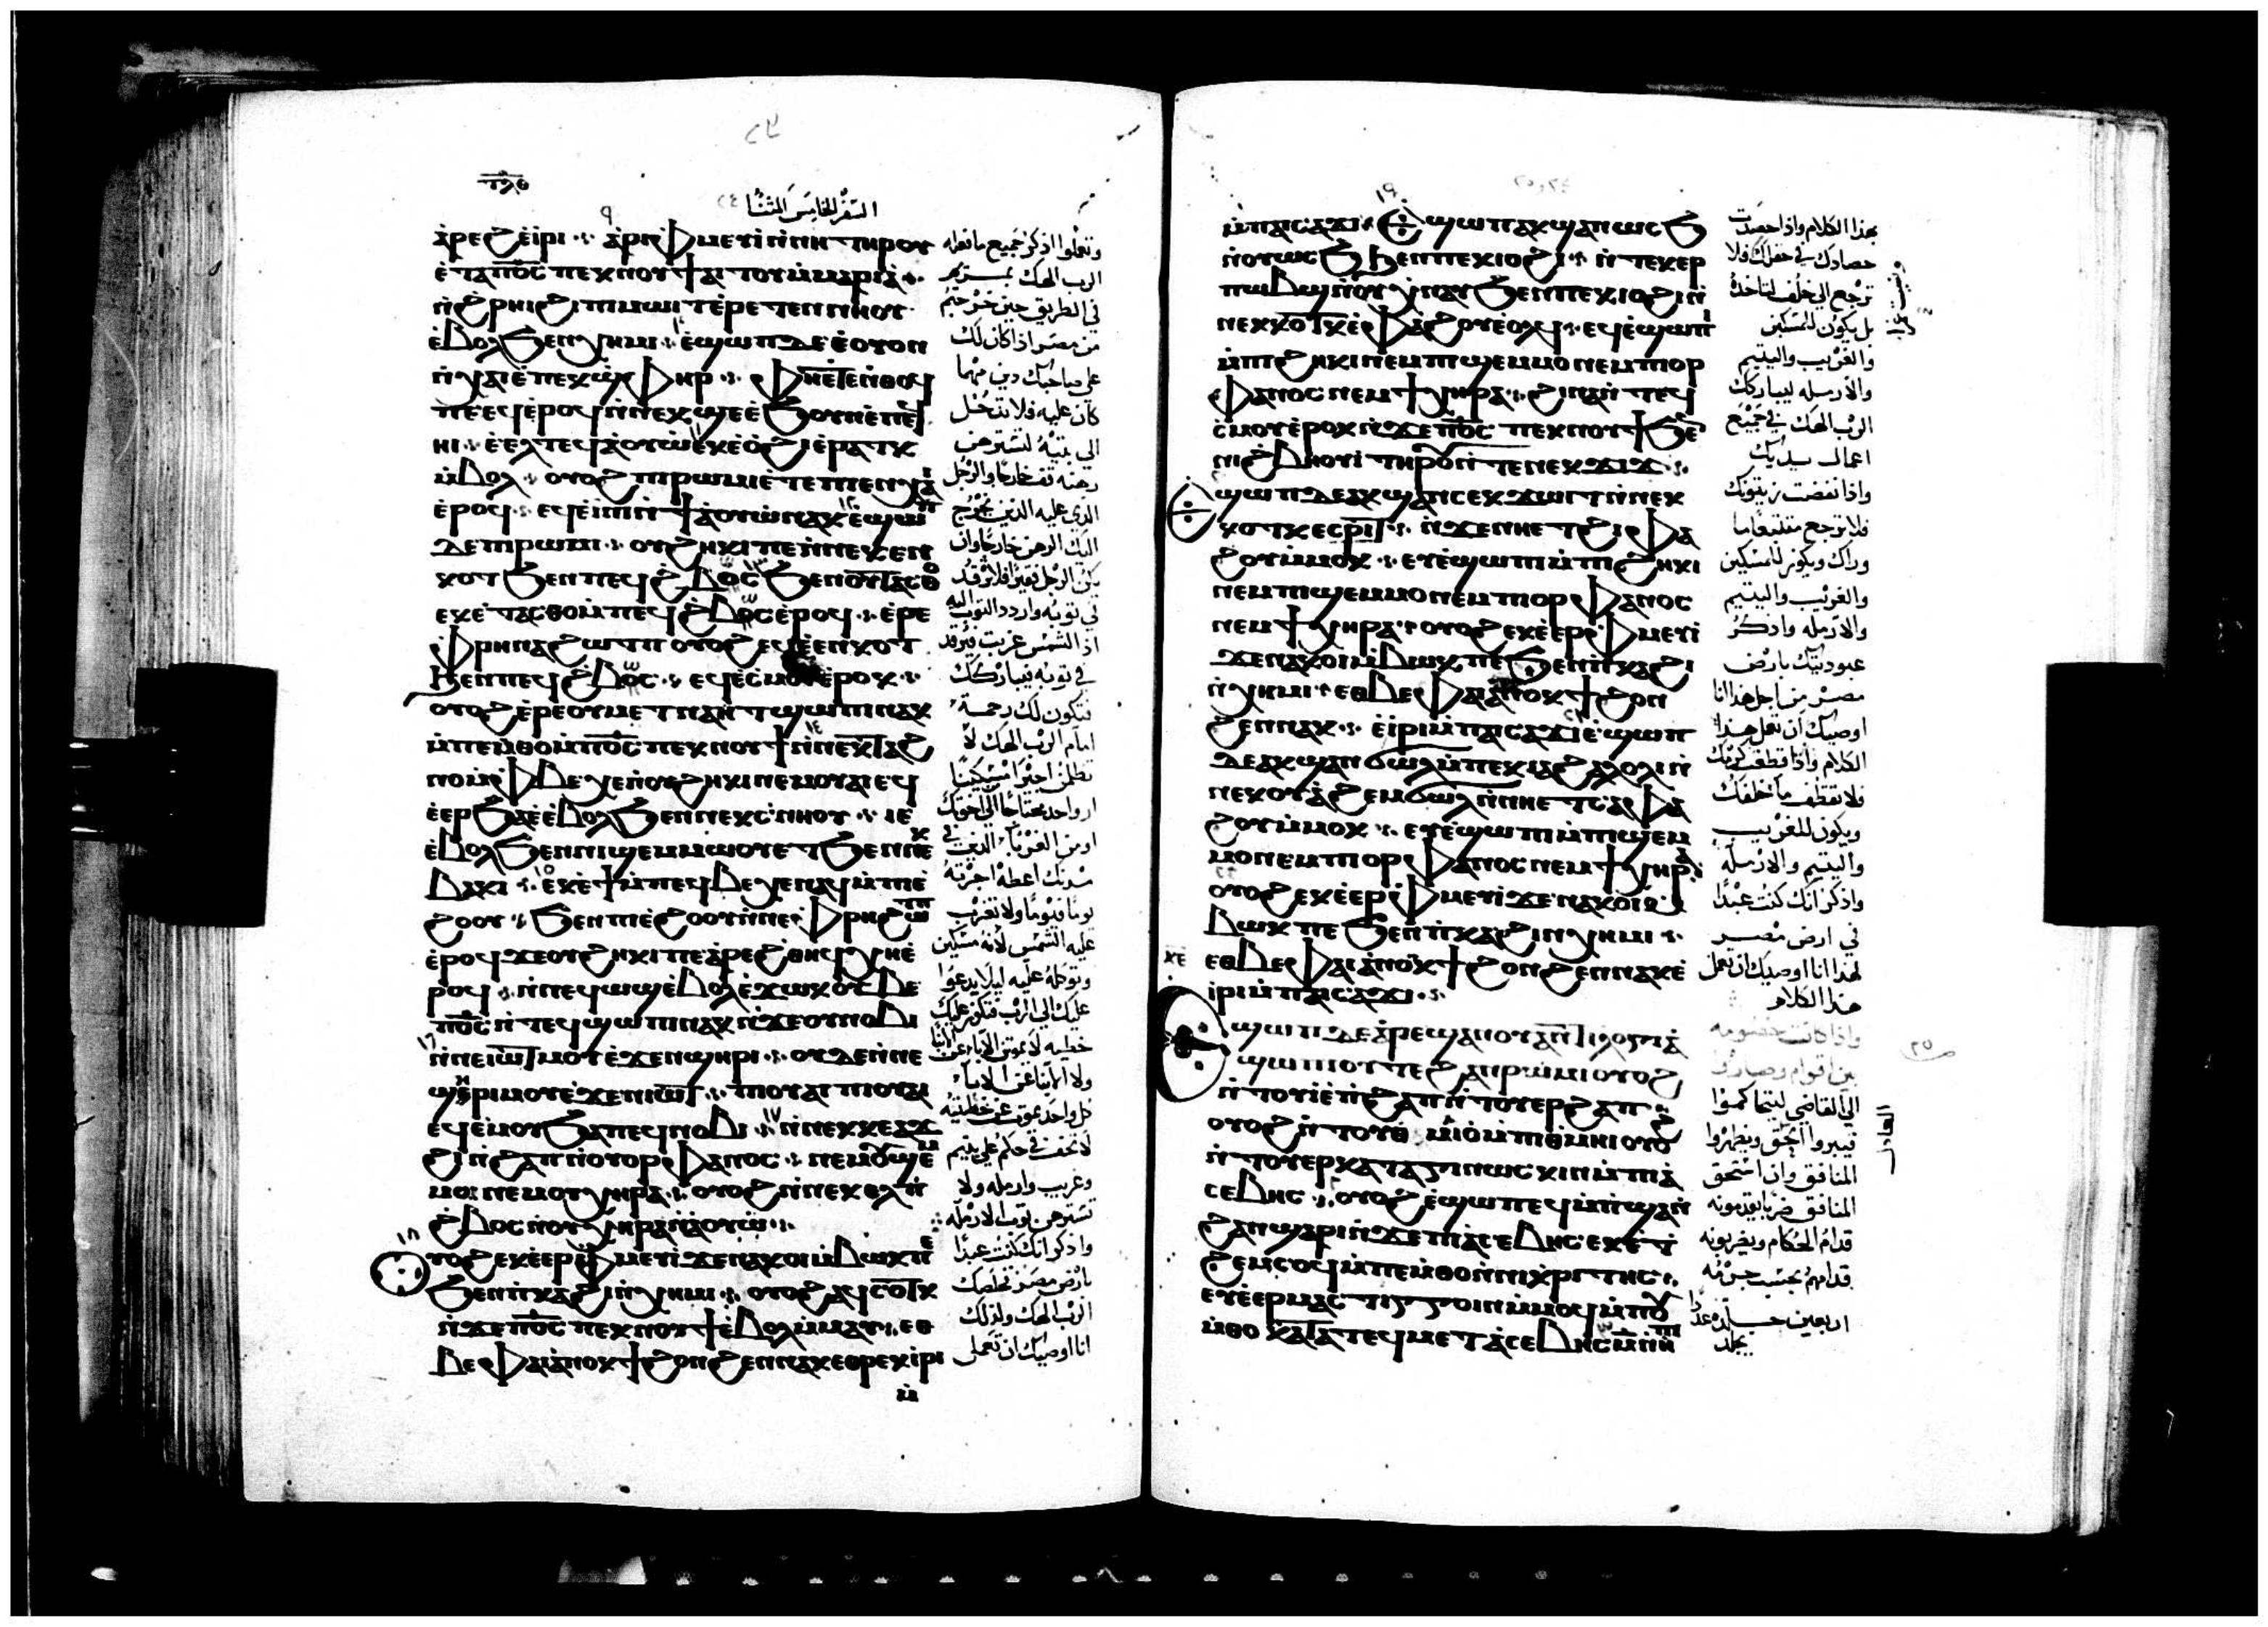 السفر الخامس المثنا
ⲁⲣⲉϩ ⲉ̀ⲓⲣⲓ ⁘ ⲁ̀ⲣⲓⲫⲙⲉⲩⲓ̀ ⲛ̀ⲛⲏ ⲧⲏⲣⲟⲩ
ⲉ̀ⲧⲁⲡⲟ̅ⲥ̅ ⲡⲉⲕⲛⲟⲩϯ ⲁⲓⲧⲟⲩ ⲙ̀ⲙⲁⲣⲓⲁ̀
ⲛ̀ϩ̀ⲣⲏⲓ ϩⲓ ⲡⲓⲙⲱⲓⲧ ⲉ̀ⲣⲉⲧⲉⲛⲛⲏⲟⲩ
ⲉ̀ⲃⲟⲗ ϧⲉⲛ ⲭⲏⲙⲓ ⁘ ⲉ̀ϣⲱⲡ ⲇⲉ ⲉ̀ⲟⲩⲟⲛ
ⲡⲉ ⲉϥⲉ̀ⲣⲟϥ ⲛ̀ⲛⲉⲕϣⲉ ⲉ̀ϧⲟⲩⲛ ⲉ̀ⲡⲉϥ
ⲏⲓ ⁘ ⲉ̀ⲉⲗ ⲧⲉϥⲁ̀ⲟⲩⲱ̀ ⲉⲕⲉ̀ⲟ̀ϩⲓ ⲉ̀ⲣⲁⲧⲕ
ⲙ̀ⲃⲟⲗ ⁘ ⲟⲩⲟϩ ⲡⲓⲣⲱⲙⲓ ⲉ̀ⲧⲉ ⲡⲉⲛⲭⲁ
ⲉ̀ⲣⲟϥ ⁘ ⲉϥⲉ̀ⲓ̀ⲛⲓ ⲛ̀ϯⲁ̀ⲟⲩⲱ ⲛⲁⲕ ⲉ̀ϣⲱⲡ
ⲇⲉ ⲡⲓⲣⲱⲙⲓ ⁘ ⲟⲩϩⲏⲕⲓ ⲡⲉ ⲛ̀ⲛⲉⲕⲉⲛ
ⲕⲟⲧ ϧⲉⲛ ⲡⲉϥϩ̀ⲃⲟⲥ ϧⲉⲛ ⲟⲩⲧⲁⲥⲑⲟ
ⲉⲕⲉ̀ⲧⲁⲥⲑⲟ ⲙ̀ⲡⲉϥϩ̀ⲃⲟⲥ ⲉ̀ⲣⲟϥ ⁘ ⲉ̀ⲣⲉ
ⲫⲣⲏ ⲛⲁϩⲱⲧⲡ ⲟⲩⲟϩ ⲉϥⲉ̀ⲉⲛⲕⲟⲧ
ϧⲉⲛ ⲡⲉϥϩ̀ⲃⲟⲥ ⁘ ⲉϥⲉ̀ⲥⲙⲟⲩ ⲉ̀ⲣⲟⲕ ⁘
ⲟⲩⲟϩ ⲉ̀ⲣⲉ ⲟⲩⲙⲉⲧⲛⲁⲏⲧ ϣⲱⲡⲓ ⲛⲁⲕ
ⲙ̀ⲡⲉⲙⲑⲟ ⲙ̀ⲡⲟ̅ⲥ̅ ⲡⲉⲕⲛⲟⲩϯ ⲛ̀ⲛⲉⲕϭⲓⲧϥ
ⲉ̀ⲉⲣϧⲁⲉ̀ ⲉ̀ⲃⲟⲗ ϧⲉⲛ ⲛⲉⲕⲥ̀ⲛⲏⲟⲩ ⁘ ⲓⲉ
ⲉ̀ⲃⲟⲗ ϧⲉⲛ ⲛⲓϣⲉⲙⲙⲱⲟⲩ ⲉⲧ ϧⲉⲛ ⲛⲉⲕ
ⲃⲁⲕⲓ ⁘ ⲉⲕⲉ̀ϯ ⲙ̀ⲡⲉϥⲃⲉⲭⲉ ⲛⲁϥ ⲙ̀ⲡⲓⲉ̀
ϩⲟⲟⲩ ⁘ ϧⲉⲛ ⲡⲓⲉ̀ϩⲟⲟⲩ ⲛ̀ⲛⲉ ⲫⲣⲏ ϩⲱⲧⲡ
ⲉ̀ⲣⲟϥ ϫⲉ ⲟⲩϩⲏⲕⲓ ⲡⲉ ⲁ̀ⲣⲉ ϩ̀ⲑⲏϥ ⲭⲏ ⲉ̀
ⲣⲟϥ ⁘ ⲛ̀ⲛⲉϥⲱϣ ⲉ̀ⲃⲟⲗ ⲉ̀ϫⲱⲕ ⲟⲩⲃⲉ
ⲡⲟ̅ⲥ̅ ⲛ̀ⲧⲉϥϣⲱⲡⲓ ⲛⲁⲕ ⲛ̀ϫⲉ ⲟⲩⲛⲟⲃⲓ
ⲛ̀ⲛⲉ ⲓⲱϯ ⲙⲟⲩ ⲉ̀ϫⲉⲛ ϣⲏⲣⲓ ⁘ ⲟⲩⲇⲉ ⲛ̀ⲛⲉ
ϣⲏⲣⲓ ⲙⲟⲩ ⲉ̀ϫⲉⲛ ⲓⲱϯ ⁘ ⲡⲓⲟⲩⲁⲓ ⲡⲓⲟⲩⲁⲓ
ⲉϥⲉ̀ⲙⲟⲩ ϧⲁ ⲡⲉϥⲛⲟⲃⲓ ⁘ ⲛ̀ⲛⲉⲕⲕⲉⲗϫ
ϩⲓ ⲛ̀ϩⲁⲡ ⲛ̀ⲟⲩⲟⲣⲫⲁⲛⲟⲥ ⁘ ⲛⲉⲙ ⲟⲩϣⲉⲙ
ⲙⲟ ⲛⲉⲙ ⲟⲩⲭⲏⲣⲁ ⁘ ⲟⲩⲟϩ ⲛ̀ⲛⲉⲕⲉⲗ ⲡ̀
ϩ̀ⲃⲟⲥ ⲛ̀ⲟⲩⲭⲏⲣⲁ ⲛ̀ⲁ̀ⲟⲩⲱ ⁘
ⲟⲩⲟϩ ⲉⲕⲉ̀ⲉⲣⲫⲙⲉⲩⲓ̀ ϫⲉ ⲛⲁⲕⲟⲓ ⲙ̀ⲃⲱⲕ ⲡⲉ
ϧⲉⲛ ⲡⲕⲁϩⲓ ⲛ̀ⲭⲏⲙⲓ ⁘ ⲟⲩⲟϩ ⲁϥⲥⲟⲧⲕ
ⲛ̀ϫⲉ ⲡⲟ̅ⲥ̅ ⲡⲉⲕⲛⲟⲩϯ ⲉ̀ⲃⲟⲗ ⲙ̀ⲙⲁⲩ ⁘ ⲉⲑ
ⲃⲉ ⲫⲁⲓ ⲁ̀ⲛⲟⲕ ϯϩⲟⲛϩⲉⲛ ⲛⲁⲕ ⲉⲑⲣⲉⲕⲓⲣⲓ
ⲙ̀
وتعملوا اذكر جميع ما فعله
الرب الهك بمريم
في الطريق حين خرجتم
من مصر اذا كان لك
على صاحبك دين مهما
كان عليه فلا تدخل
الى بيته لتسترهن
رهنه قف خارجا والرجل
الذي عليه الدين يخرج
اليك الرهن خارجا وان
يكن الرجل فقيرا فلا ترقد
في ثوبه واردد الثوب اليه
اذ الشمس غربت فيرقد
في ثوبه فيباركك
فتكون لك رحمة
امام الرب الهك لا
تظلم اجيرا مسكينا
او واحد محتاجا الى اخوتك
او من الغربا الذين في
مدنك اعطه اجرته
يوما فيوما ولا تغرب
عليه الشمس لانه مسكين
وتوكله عليه ليلا يدعوا
عليك الى الرب فتكون عليك
خطيه لا يموتن الاباء عن الابنا
ولا الابنا عن الابآء
كل واحد يموت عن خطيته
لا تحف في حكم على يتيم
وغريب وارمله ولا
تسترهن ثوب الارملة
واذكر انك كنت عبدا
بارض مصر فخلصك
الرب الهك ولذلك
انا اوصيك ان تعمل
ⲙ̀ⲡⲁⲓⲥⲁϫⲓ ⁘ ⲉϣⲱⲡ ⲁⲕϣⲁⲛⲱⲥϧ
ⲛ̀ⲟⲩⲱⲥϧ ϧⲉⲛ ⲡⲉⲕⲓⲟϩⲓ ⁘ ⲛ̀ⲧⲉⲕⲉⲣ
ⲡⲱⲃϣ ⲛ̀ⲟⲩⲭⲛⲁⲩ ϧⲉⲛ ⲡⲉⲕⲓⲟϩⲓ ⲛ̀
ⲛⲉⲕⲕⲟⲧⲕ ⲉ̀ⲫⲁϩⲟⲩ ⲉ̀ⲟⲗϥ ⁘ ⲉϥⲉ̀ϣⲱⲡⲓ
ⲙ̀ⲡⲓϩⲏⲕⲓ ⲛⲉⲙ ⲡⲓϣⲉⲙⲙⲟ ⲛⲉⲙ ⲡⲓⲟⲣ
ⲫⲁⲛⲟⲥ ⲛⲉⲙ ϯⲭⲏⲣⲁ ⁘ ϩⲓⲛⲁ ⲛ̀ⲧⲉϥ
ⲥ̀ⲙⲟⲩ ⲉ̀ⲣⲟⲕ ⲛ̀ϫⲉ ⲡⲟ̅ⲥ̅ ⲡⲉⲕⲛⲟⲩϯ ϧⲉⲛ
ⲛⲓϩ̀ⲃⲏⲟⲩⲓ̀ ⲧⲏⲣⲟⲩ ⲛ̀ⲧⲉ ⲛⲉⲕϫⲓϫ ⁘
ⲉϣⲱⲡ ⲇⲉ ⲁⲕϣⲁⲛⲥⲉⲕ ϫⲱⲓⲧ ⲛ̀ⲛⲉⲕ
ⲕⲟⲧⲕ ⲉⲥⲣⲓⲧ ⁘ ⲛ̀ϫⲉ ⲛⲏ ⲉⲧϩⲓ ⲫⲁ
ϩⲟⲩ ⲙ̀ⲙⲟⲕ ⁘ ⲉⲩⲉ̀ϣⲱⲡⲓ ⲙ̀ⲡⲓϩⲏⲕⲓ
ⲛⲉⲙ ⲡⲓϣⲉⲙⲙⲟ ⲛⲉⲙ ⲡⲓⲟⲣⲫⲁⲛⲟⲥ
ⲛⲉⲙ ϯⲭⲏⲣⲁ ⁘ ⲟⲩⲟϩ ⲉⲕⲉ̀ⲉⲣⲫⲙⲉⲩⲓ̀
ϫⲉ ⲛⲁⲕⲟⲓ ⲙ̀ⲃⲱⲕ ⲡⲉ ϧⲉⲛ ⲡⲕⲁϩⲓ
ⲛ̀ⲭⲏⲙⲓ ⁘ ⲉⲑⲃⲉ ⲫⲁⲓ ⲁ̀ⲛⲟⲕ ϯϩⲟⲛ
ϩⲉⲛ ⲛⲁⲕ ⁘ ⲉ̀ⲓⲣⲓ ⲙ̀ⲡⲁⲓⲥⲁϫⲓ ⲉ̀ϣⲱⲡ
ⲇⲉ ⲁⲕϣⲁⲛϭⲱⲗ ⲙ̀ⲡⲉⲕⲓⲁϩⲁⲗⲟⲗⲓ ⲛ̀
ⲛⲉⲕⲟⲩⲁ̀ϩⲉⲙϭⲱⲗ ⲛ̀ⲛⲏ ⲉⲧⲥⲁⲫⲁ
ϩⲟⲩ ⲙ̀ⲙⲟⲕ ⁘ ⲉⲩⲉ̀ϣⲱⲡⲓ ⲙ̀ⲡⲓϣⲉⲙ
ⲙⲟ ⲛⲉⲙ ⲡⲓⲟⲣⲫⲁⲛⲟⲥ ⲛⲉⲙ ϯⲭⲏⲣⲁ
ⲟⲩⲟϩ ⲉⲕⲉ̀ⲉⲣⲫⲙⲉⲩⲓ̀ ϫⲉ ⲛⲁⲕⲟⲓ ⲙ̀
ⲃⲱⲕ ⲡⲉ ϧⲉⲛ ⲡⲕⲁϩⲓ ⲛ̀ⲭⲏⲙⲓ ⁘
ⲉⲑⲃⲉ ⲫⲁⲓ ⲁ̀ⲛⲟⲕ ϯϩⲟⲛϩⲉⲛ ⲛⲁⲕ ⲉ̀
ⲓⲣⲓ ⲙ̀ⲡⲁⲓⲥⲁϫⲓ ⁘
ⲉϣⲱⲡ ⲇⲉ ⲁ̀ⲣⲉϣⲁⲛ ⲟⲩⲁⲛⲧⲓⲗⲟⲅⲓⲁ̀
ϣⲱⲡⲓ ⲟⲩⲧⲉ ϩⲁⲛⲣⲱⲙⲓ ⲟⲩⲟϩ
ⲛ̀ⲧⲟⲩⲓ̀ ⲉ̀ⲡϩⲁⲡ ⲛ̀ⲧⲟⲩⲉⲣϩⲁⲡ ⁘
ⲟⲩⲟϩ ⲛ̀ⲧⲟⲩⲑⲙⲁⲓⲟ̀ ⲙ̀ⲡⲓⲑⲙⲏⲓ ⲟⲩⲟϩ
ⲛ̀ⲧⲟⲩⲉⲣⲕⲁⲧⲁⲅⲓⲛⲱⲥⲕⲓⲛ ⲙ̀ⲡⲓⲁ̀
ⲥⲉⲃⲏⲥ ⁘ ⲟⲩⲟϩ ⲉ̀ϣⲱⲡ ⲉϥⲙ̀ⲡϣⲁ ⲛ̀
ϩⲁⲛϣⲁⲣⲓ ⲛ̀ϫⲉ ⲡⲓⲁ̀ⲥⲉⲃⲏⲥ ⲉⲕⲉ̀ⲧ
ϩⲉⲙⲥⲟϥ ⲙ̀ⲡⲉⲙⲑⲟ ⲛ̀ⲛⲓⲕⲣⲓⲧⲏⲥ ⁘
ⲉⲩⲉ̀ⲉⲣⲙⲁⲥⲧⲓⲅⲅⲟⲓⲛ ⲙ̀ⲙⲟϥ ⲙ̀ⲡⲟⲩ
ⲙ̀ⲑⲟ ⲕⲁⲧⲁ ⲧⲉϥⲙⲉⲧⲁ̀ⲥⲉⲃⲏⲥ
بهذا الكلام واذا حصدت
حصادك في حقلك فلا
ترجع الى خلف لتاخذه
بل يكون للمسكين
والغريب واليتيم
والارمله ليباركك
الرب الهك في جميع
اعمال يديك
واذا نفضت زيتونك
فلا ترجع
وراك ويكون للمسكين
والغريب واليتيم
والارمله واذكر
عبوديتك بارض
مصر من اجل هذا انا
اوصيك ان تفعل هذا
الكلام واذا قطفت كرمك
فلا تقطف ما خلفك
ويكون للغريب
واليتيم والارملة
واذكر انك كنت عبدا
في ارض مصر
لهذا انا اوصيك ان تعمل
هذا الكلام
واذا كانت خصومه
بين اقوام وصاروا
الى القاضي ليتحاكموا
فيبرروا الحق ويظهروا
المنافق وان استحق
المنافق ضربا يقدمونه
قدام الحكام ويضربونه
قدامهم بحسب جرمه
اربعين جلده عدا
يجلد
العادل
٢٥